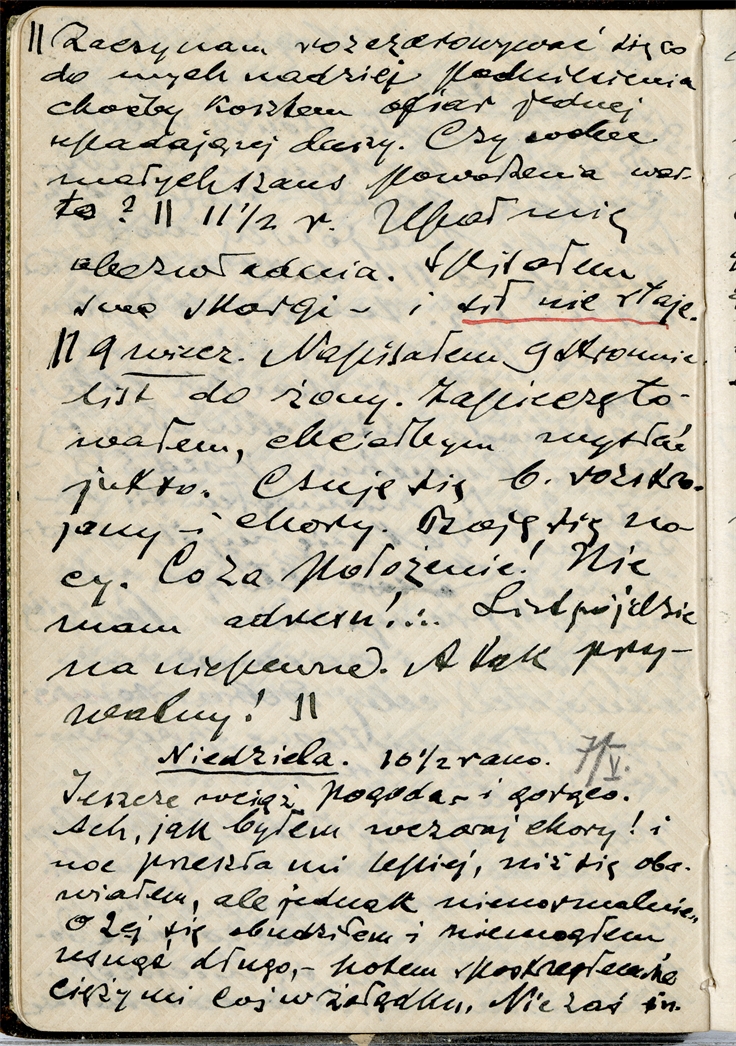 || Zaczynam rozczarowywać się co
do mych nadziej podniesienia
choćby kosztem ofiar jednej
upadającej duszy. Czy wobec
małych szans powodzenia war-
to? || 11 1/2 r. Upał mię
obezwładnia. Spisałem
swe skargi - i sił nie staje.
|| 9 wiecz. Napisałem 9 stronnic.
list do żony. Zapieczęto-
wałem, chciałbym wysłać
jutro. Czuję się b. rozstro-
jany - i chory. Boję się no
cy. Co za położenie! Nie
mam adresu!... List pójdzie
na niepewne. A tak pry-
watny! ||
Niedziela. 10 1/2 rano. 7/V.
Jeszcze wciąż pogoda - i gorąco.
Ach, jak byłem wczoraj chory! i
noc przeszła mi lepiej, niż się oba-
wiałem, ale jednak nienormalnie.
O 2ej się obudziłem i niemogłem
usnąć długo, - potem spostrzegłem, że
ciąży mi coś w żołądku. Nie zaś